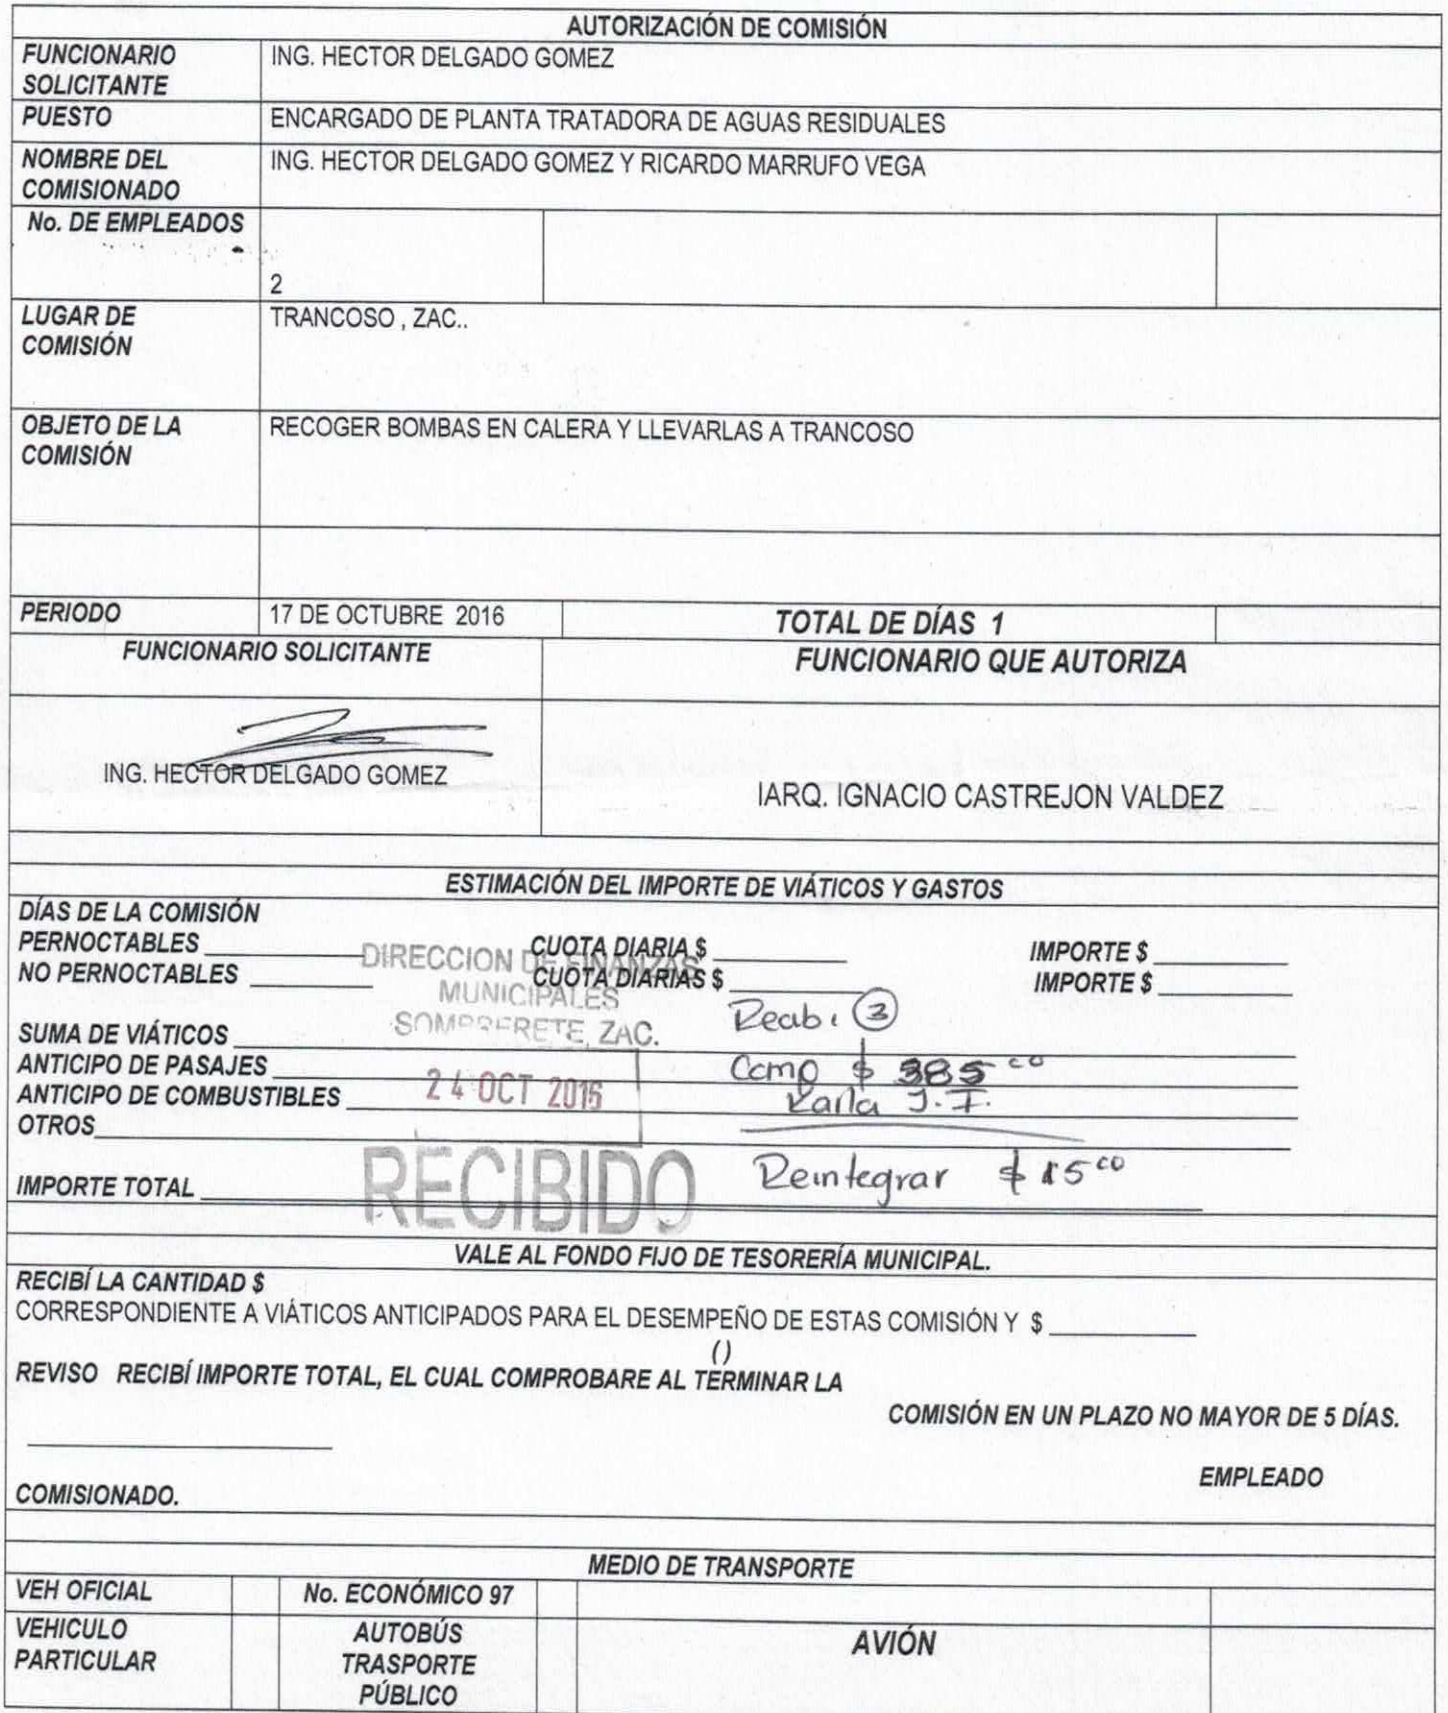 AUTORIZACIÓN DE COMISIÓN
FUNCIONARIO SOLICITANTE ING. HECTOR DELGADO GOMEZ
PUESTO ENCARGADO DE PLANTA TRATADORA DE AGUAS RESIDUALES
NOMBRE DEL COMISIONADO ING. HECTOR DELGADO GOMEZ Y RICARDO MARRUFO VEGA
No. DE EMPLEADOS
2
LUGAR DE COMISIÓN TRANCOSO , ZAC..
OBJETO DE LA COMISIÓN RECOGER BOMBAS EN CALERA Y LLEVARLAS A TRANCOSO
PERIODO 17 DE OCTUBRE 2016 TOTAL DE DÍAS 1
FUNCIONARIO SOLICITANTE FUNCIONARIO QUE AUTORIZA
ING. HECTOR DELGADO GOMEZ
IARQ. IGNACIO CASTREJON VALDEZ
ESTIMACIÓN DEL IMPORTE DE VIÁTICOS Y GASTOS
DÍAS DE LA COMISIÓN
PERNOCTABLES CUOTA DIARIA $ IMPORTE $
NO PERNOCTABLES CUOTA DIARIAS $ IMPORTE $
DIRECCION DE FINANZAS
MUNICIPALES
SOMBRERETE, ZAC.
24 OCT 2016
RECIBIDO
SUMA DE VIÁTICOS
ANTICIPO DE PASAJES
ANTICIPO DE COMBUSTIBLES
OTROS
IMPORTE TOTAL
3
$ 385 00
Karla J. I.
Reintegrar $ 15 00
VALE AL FONDO FIJO DE TESORERÍA MUNICIPAL.
RECIBÍ LA CANTIDAD $
CORRESPONDIENTE A VIÁTICOS ANTICIPADOS PARA EL DESEMPEÑO DE ESTAS COMISIÓN Y $
()
REVISO RECIBÍ IMPORTE TOTAL, EL CUAL COMPROBARE AL TERMINAR LA
COMISIÓN EN UN PLAZO NO MAYOR DE 5 DÍAS.
EMPLEADO
COMISIONADO.
MEDIO DE TRANSPORTE
VEH OFICIAL No. ECONÓMICO 97
VEHICULO PARTICULAR AUTOBÚS TRASPORTE PÚBLICO AVIÓN